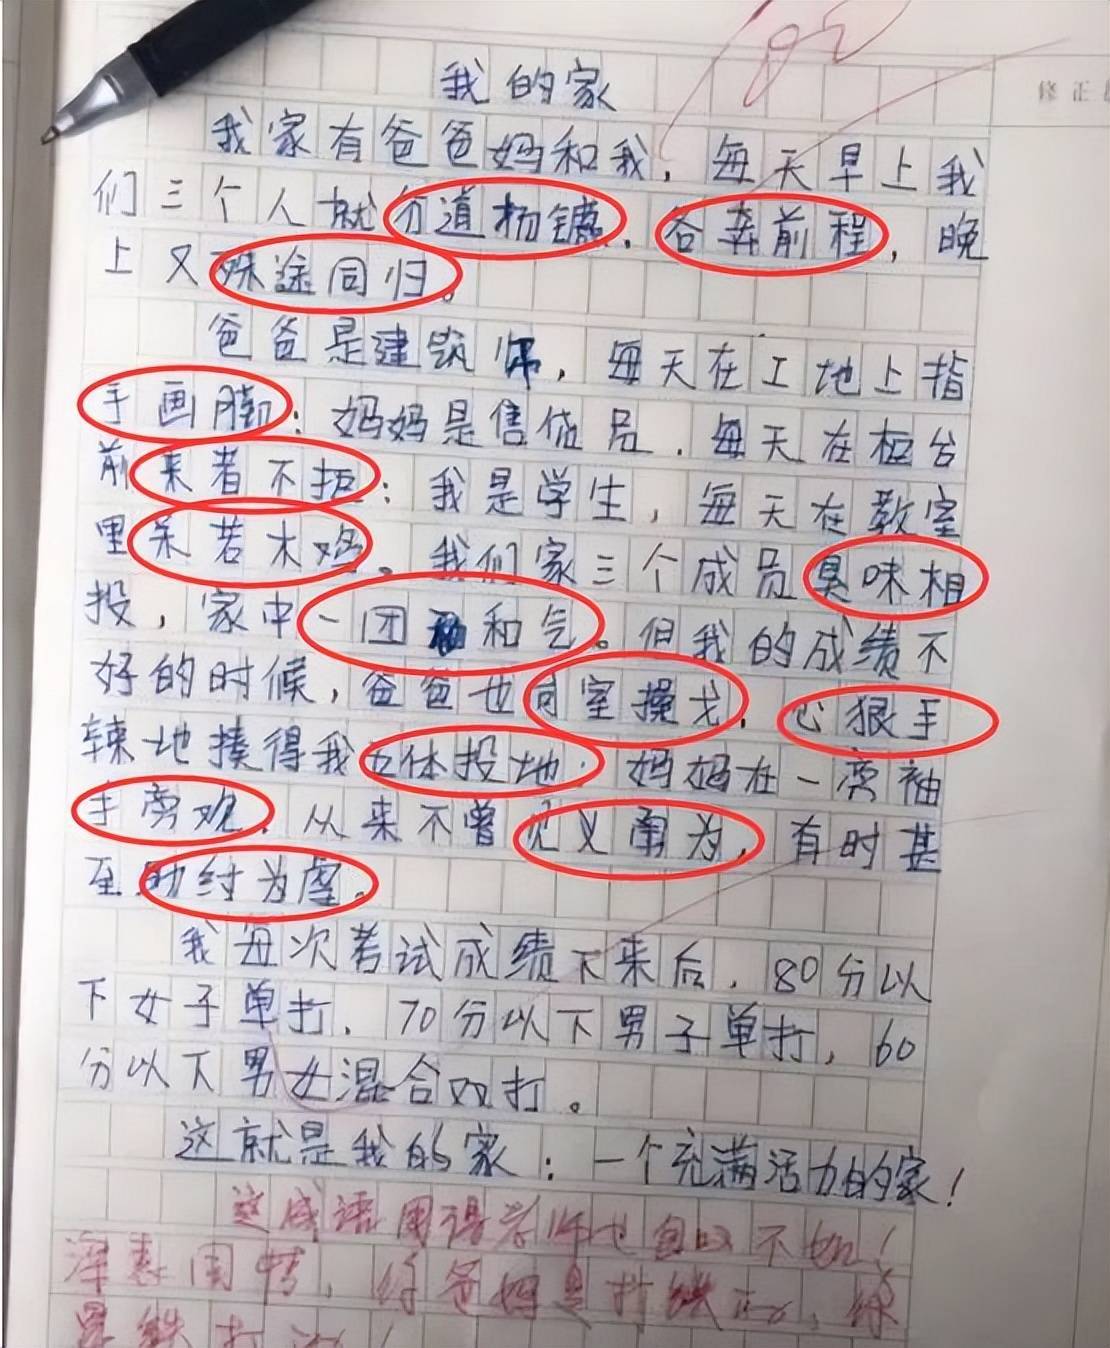 我的家
我家有爸爸妈和我，每天早上我
们三个人就分道杨镳，各奔前程，晚
上又殊途同归。
爸爸是建筑师，每天在工地上指
手画脚；妈妈是售货员，每天在柜台
前来者不拒；我是学生，每天在教室
里呆若木鸡。我们家三个成员臭味相
投，家中一团和气。但我的成绩不
好的时候，爸爸也同室操戈，心狠手
辣地揍得我五体投地；妈妈在一旁袖
手旁观，从来不曾见义勇为，有时甚
至助纣为虐。
我每次考试成绩下来后，80分以
下女子单打，70分以下男子单打，60
分以下男女混合双打。
这就是我的家：一个充满活力的家！
这成语用得老师也自叹不如！
深表同情，你爸妈是打铁的，你
是铁打
修正